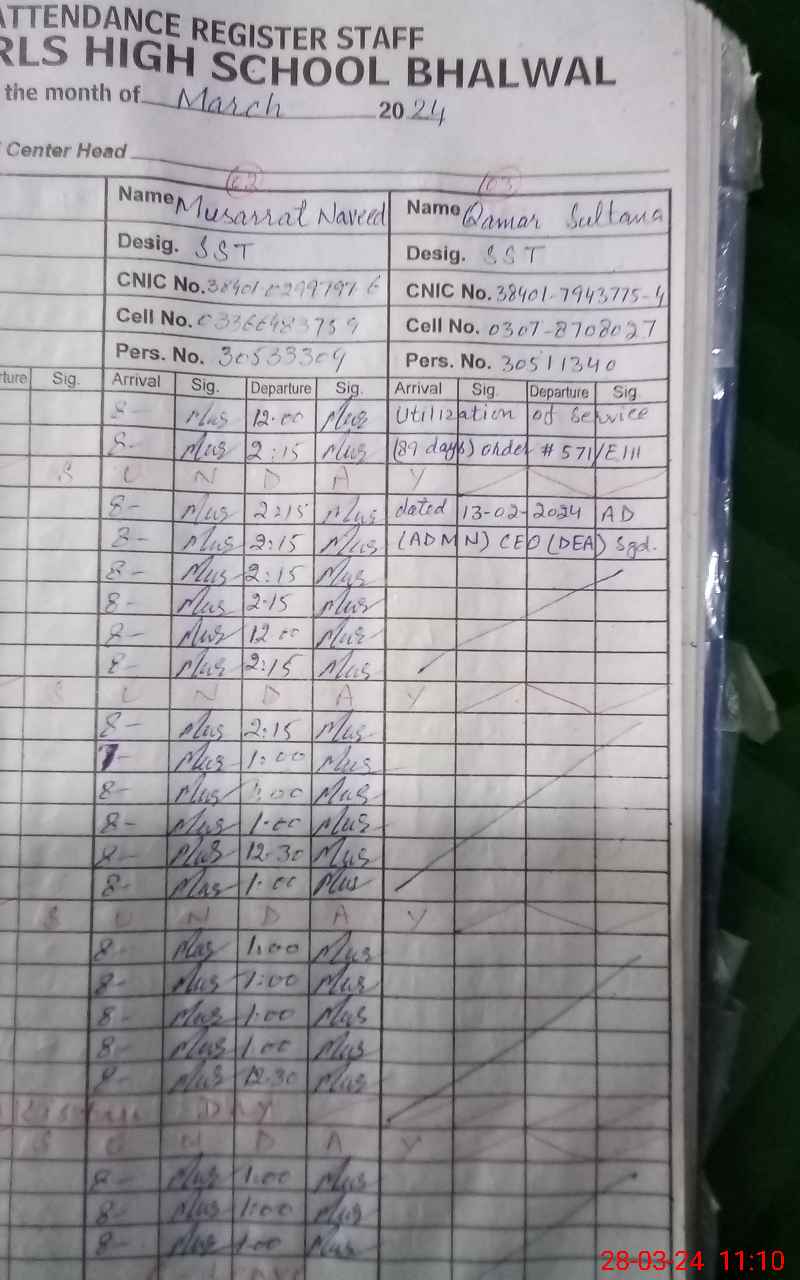 ATTENDANCE REGISTER STAFF
RLS HIGH SCHOOL BHALWAL
the month of March 2024
Center Head
103
Name Musarrat Naveed Name Qamar Sultana
Desig. SST Desig. SST
CNIC No. CNIC No. 38401-7943775-4
Cell No. Cell No. 0307-8708027
Pers. No. 30533309 Pers. No. 30511340
ture Sig. Arrival Sig. Departure Sig. Arrival Sig. Departure Sig.
8- Mus 12.00 Mus Utilization of Service
8- Mus 2:15 Mus (89 days) order # 571/EIII
S U N D A Y
8- Mus 2:15 Mus dated 13-02-2024 AD
8- Mus 2:15 Mus (ADMN) CEO (DEA) Sgd.
8- Mus 2:15 Mus
8- Mus 2.15 Mus
8- Mus 12.00 Mus
8- Mus 2:15 Mus
S U N D A Y
8- Mus 2:15 Mus
Mus 1:00 Mus
8- Mus 1:00 Mus
8- Mus 1.00 Mus
8- Mus 12.30 Mus
8- Mus 1:00 Mus
S U N D A Y
8- Mus 1:00 Mus
8- Mus 1:00 Mus
8- Mus 1:00 Mus
8- Mus 1:00 Mus
8- Mus 12.30 Mus
DAY
S U N D A Y
8- Mus 1:00 Mus
8- Mus 1:00 Mus
8- Mus 1.00 Mus
28-03-24 11:10